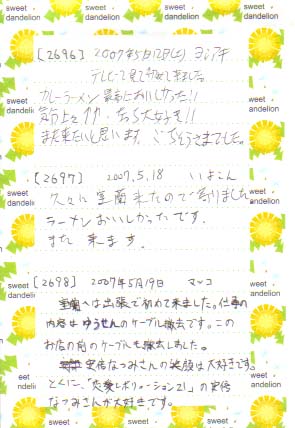 sweet dandelion
[2696] 2007年5月12日(土) ヨシアキ
テレビで見て
カレーラーメン最高においしかった!!
大好き!!
また来たいと思います。ごちそうさまでした。
[2697] 2007.5.18 いよこん
久々に室蘭来たので寄りました
ラーメンおいしかったです。
また 来ます。
[2698] 2007年5月19日 マッコ
室蘭へは出張で初めて来ました。仕事の
内容はゆうせんのケーブル撤去です。この
お店の前のケーブルも撤去しました。
安倍なつみさんの笑顔は大好きです。
とくに、「恋愛レボリューション21」の安倍
なつみさんが大好きです。